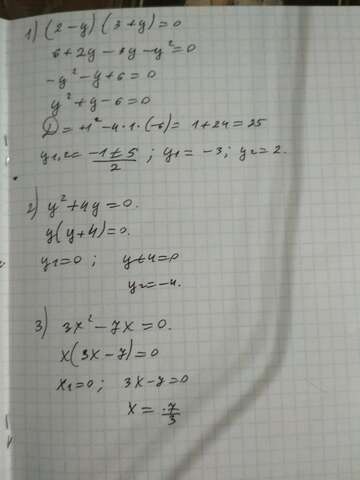 1) (2-y)(3+y)=0
6+2y-3y-y²=0
-y²-y+6=0
y²+y-6=0
D=+1²-4·1·(-6)=1+24=25
y1,2=(-1±5)/2; y1=-3; y2=2.
2) y²+4y=0.
y(y+4)=0.
y1=0; y+4=0
y2=-4.
3) 3x²-7x=0.
x(3x-7)=0
x1=0; 3x-7=0
x=7/3